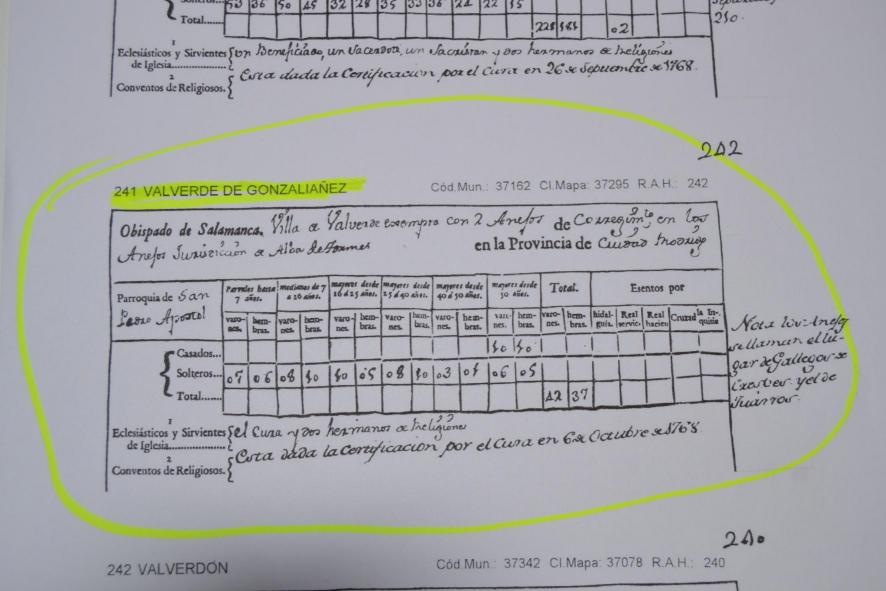 53 36 50 45 32 28 35 33 36 21 22 15
Total.......
02
210.
1
Eclesiásticos y Sirvientes { un Beneficiado, un Sacerdote, un Sacristan y dos hermanos de Religiones
de Iglesia..................
2
Conventos de Religiosos. { Esta dada la Certificacion por el Cura en 26 de Septiembre de 1768.
242
241 VALVERDE DE GONZALIAÑEZ Cód.Mun.: 37162 Cl.Mapa: 37295 R.A.H.: 242
Obispado de Salamanca. Villa de Valverde exempta con 2 Anejos de Corregim.to en los
Anejos Jurisdiccion de Alba de Tormes en la Provincia de Ciudad Rodrigo
Parroquia de San
Pedro Apostol
Parvulos hasta 7 años. medianos de 7 a 16 años. mayores desde 16 a 25 años. mayores desde 25 a 40 años. mayores desde 40 a 50 años. mayores desde 50 años. Total. Esentos por
varones. hembras. varones. hembras. varones. hembras. varones. hembras. varones. hembras. varones. hembras. varones. hembras. hidalguía. Real servic. Real hacien Cruzad la In-quisia
Casados... 10 10
Solteros... 07 06 08 10 10 05 08 10 03 01 06 05
Total...... 42 37
Nota los Anejos
se llaman el lu-
gar de Gallegos de
Crespes y el de
1
Eclesiásticos y Sirvientes { el Cura y dos hermanos de Religiones
de Iglesia..................
2
Conventos de Religiosos. { Esta dada la Certificacion por el Cura en 6 de Octubre de 1768.
240
242 VALVERDON Cód.Mun.: 37342 Cl.Mapa: 37078 R.A.H.: 240